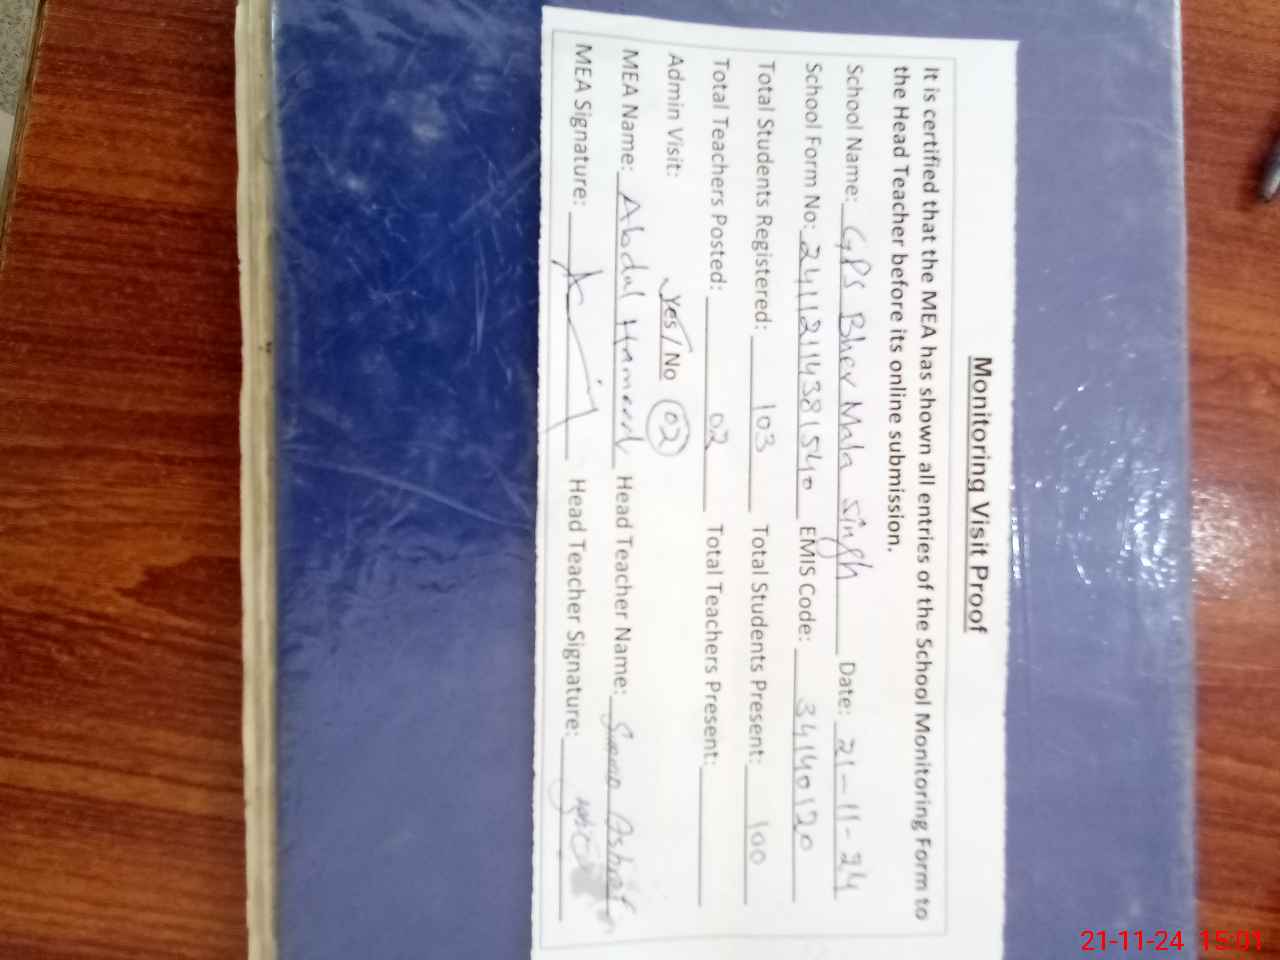 Monitoring Visit Proof
It is certified that the MEA has shown all entries of the School Monitoring Form to
the Head Teacher before its online submission.
School Name: GPS Bher Mala Singh Date: 21-11-24
School Form No: 24112114381540 EMIS Code: 34140120
Total Students Registered: 103 Total Students Present: 100
Total Teachers Posted: 02 Total Teachers Present:
Admin Visit: Yes/No 02
MEA Name: Abdul Hameed Head Teacher Name: Ashraf
MEA Signature: Head Teacher Signature:
21-11-24 15:01